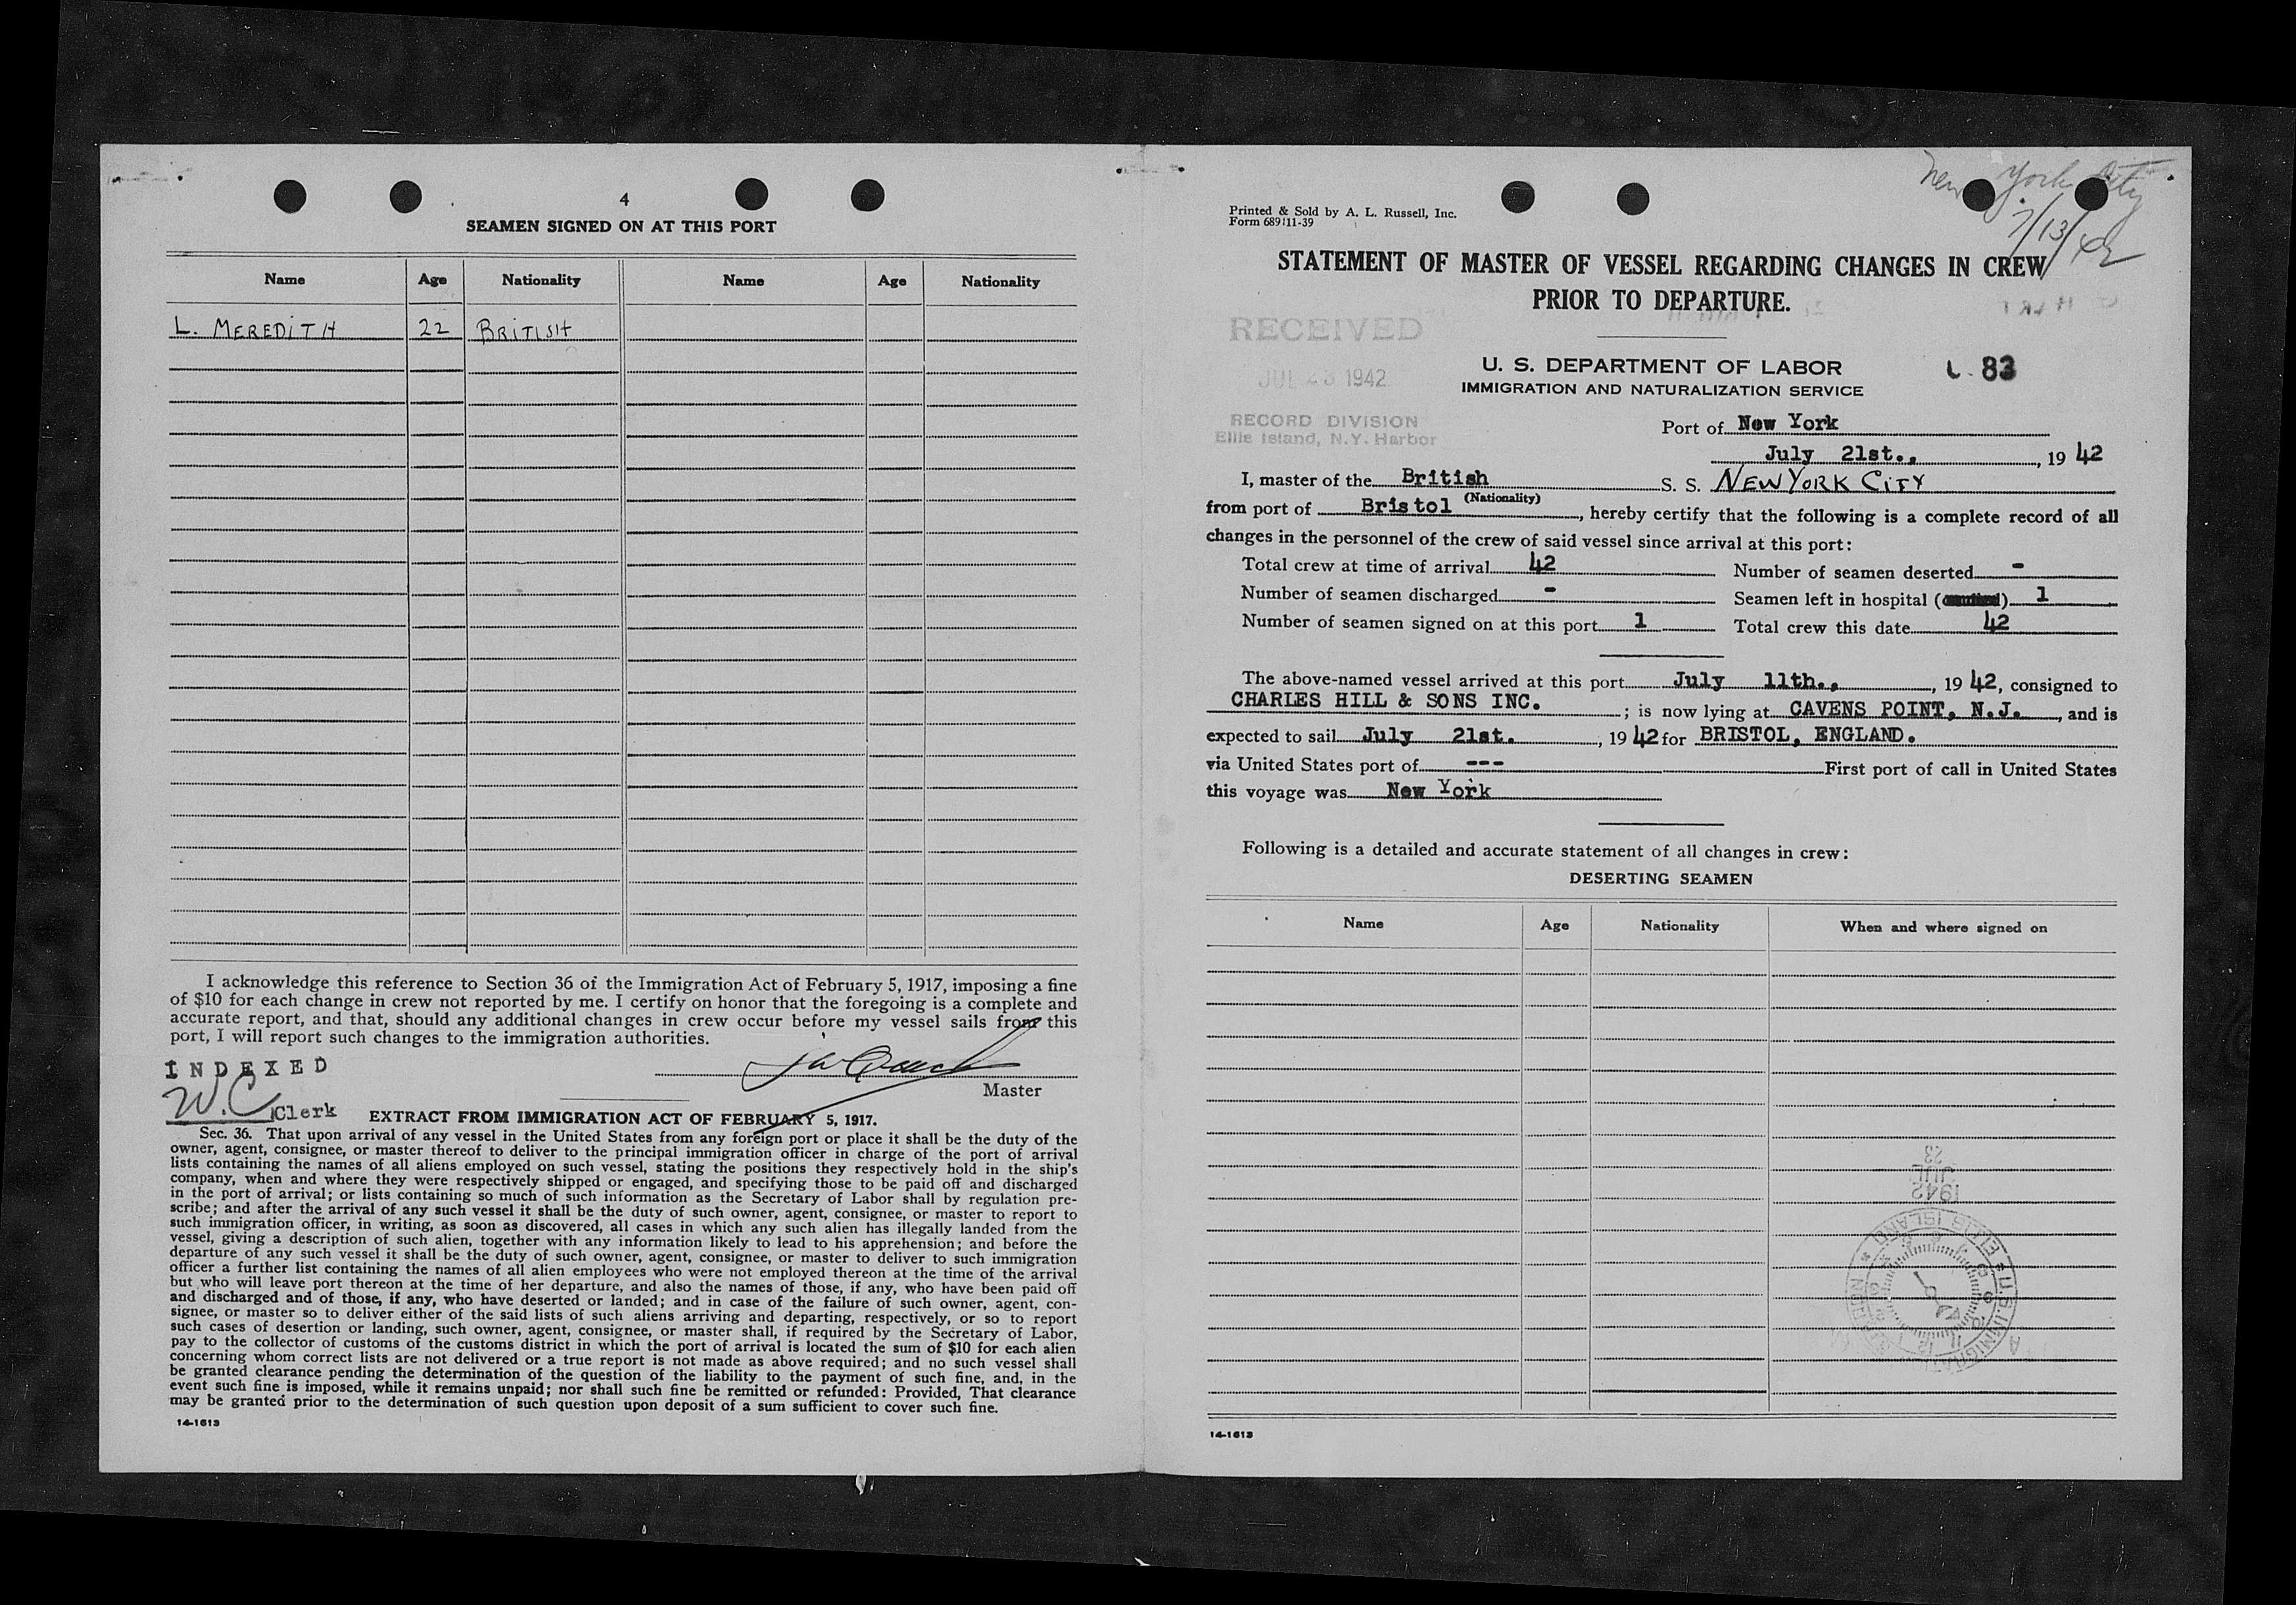 4
SEAMEN SIGNED ON AT THIS PORT
Name Age Nationality Name Age Nationality
L. MEREDITH 22 BRITISH
I acknowledge this reference to Section 36 of the Immigration Act of February 5, 1917, imposing a fine
of $10 for each change in crew not reported by me. I certify on honor that the foregoing is a complete and
accurate report, and that, should any additional changes in crew occur before my vessel sails from this
port, I will report such changes to the immigration authorities.
INDEXED
Master
W.C Clerk
EXTRACT FROM IMMIGRATION ACT OF FEBRUARY 5, 1917.
Sec. 36. That upon arrival of any vessel in the United States from any foreign port or place it shall be the duty of the
owner, agent, consignee, or master thereof to deliver to the principal immigration officer in charge of the port of arrival
lists containing the names of all aliens employed on such vessel, stating the positions they respectively hold in the ship's
company, when and where they were respectively shipped or engaged, and specifying those to be paid off and discharged
in the port of arrival; or lists containing so much of such information as the Secretary of Labor shall by regulation pre-
scribe; and after the arrival of any such vessel it shall be the duty of such owner, agent, consignee, or master to report to
such immigration officer, in writing, as soon as discovered, all cases in which any such alien has illegally landed from the
vessel, giving a description of such alien, together with any information likely to lead to his apprehension; and before the
departure of any such vessel it shall be the duty of such owner, agent, consignee, or master to deliver to such immigration
officer a further list containing the names of all alien employees who were not employed thereon at the time of the arrival
but who will leave port thereon at the time of her departure, and also the names of those, if any, who have been paid off
and discharged and of those, if any, who have deserted or landed; and in case of the failure of such owner, agent, con-
signee, or master so to deliver either of the said lists of such aliens arriving and departing, respectively, or so to report
such cases of desertion or landing, such owner, agent, consignee, or master shall, if required by the Secretary of Labor,
pay to the collector of customs of the customs district in which the port of arrival is located the sum of $10 for each alien
concerning whom correct lists are not delivered or a true report is not made as above required; and no such vessel shall
be granted clearance pending the determination of the question of the liability to the payment of such fine, and, in the
event such fine is imposed, while it remains unpaid; nor shall such fine be remitted or refunded: Provided, That clearance
may be granted prior to the determination of such question upon deposit of a sum sufficient to cover such fine.
14-1613
New York City
7/13/42
Printed & Sold by A. L. Russell, Inc.
Form 689 11-39
STATEMENT OF MASTER OF VESSEL REGARDING CHANGES IN CREW
PRIOR TO DEPARTURE.
RECEIVED
JUL 1942
RECORD DIVISION
Ellis Island, N.Y. Harbor
U. S. DEPARTMENT OF LABOR
IMMIGRATION AND NATURALIZATION SERVICE
83
Port of New York
July 21st., , 19 42
I, master of the British S. S. NEW YORK CITY
(Nationality)
from port of Bristol , hereby certify that the following is a complete record of all
changes in the personnel of the crew of said vessel since arrival at this port:
Total crew at time of arrival 42 Number of seamen deserted -
Number of seamen discharged - Seamen left in hospital ( ) 1
Number of seamen signed on at this port 1 Total crew this date 42
The above-named vessel arrived at this port July 11th., , 19 42, consigned to
CHARLES HILL & SONS INC. ; is now lying at CAVENS POINT, N.J. , and is
expected to sail July 21st. , 19 42 for BRISTOL, ENGLAND.
via United States port of --- First port of call in United States
this voyage was New York
Following is a detailed and accurate statement of all changes in crew:
DESERTING SEAMEN
Name Age Nationality When and where signed on
23
JUL
1942
ELLIS ISLAND * U.S. IMMIGRATION
14-1613